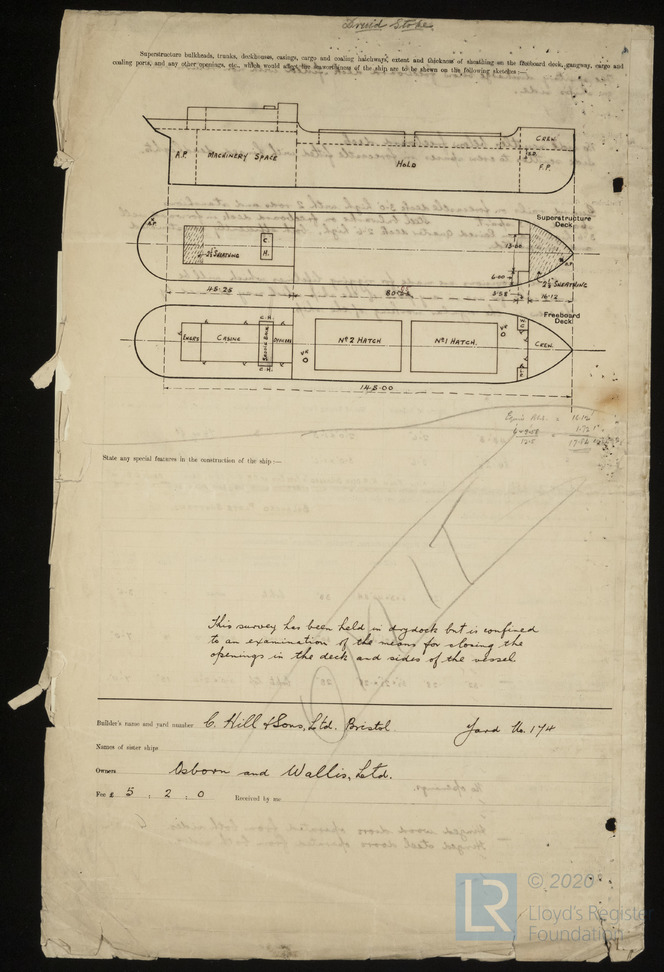 Druid Stoke.
Superstructure bulkheads, trunks, deckhouses, casings, cargo and coaling hatchways, extent and thickness of sheathing on the freeboard deck, gangway, cargo and
coaling ports, and any other openings, etc., which would affect the seaworthiness of the ship are to be shewn on the following sketches:—
CREW.
A.P. MACHINERY SPACE HOLD F.P.
Superstructure
Deck
A.P.
C.
H.
13.60
2½" SHEATHING
6.00
2½" SHEATHING
45.25 3.58 16.12
Freeboard
Deck
C.H.
CASING Nº 2 HATCH Nº 1 HATCH. CREW.
C.H.
145.00
State any special features in the construction of the ship:—
OMIT
This survey has been held in drydock but is confined
to an examination of the means for closing the
openings in the deck and sides of the vessel
Builder's name and yard number C. Hill & Sons, Ltd. Bristol Yard No. 174
Names of sister ships
Owners Osborn and Wallis, Ltd.
Fee £ 5 : 2 : 0 Received by me
LR © 2020
Lloyd's Register
Foundation